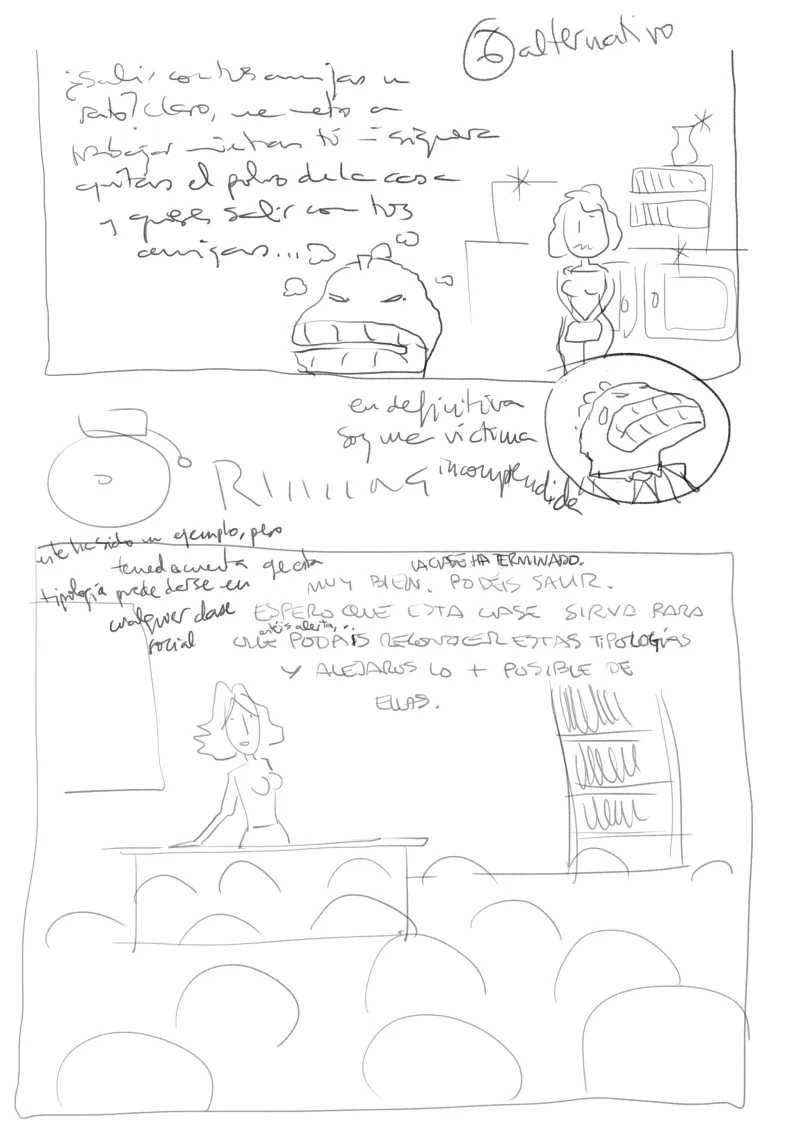 6 alternativo
¿Salir con tus amigas un
rato? Claro, me mato a
trabajar mientras tú ni siquiera
quitas el polvo de la casa
y quieres salir con tus
amigas...
en definitiva
soy una víctima
incomprendida
RIIIIIING
este ha sido un ejemplo, pero
tened en cuenta que esta
tipología puede darse en
cualquier clase
social
LA CLASE HA TERMINADO.
MUY BIEN. PODÉIS SALIR.
ESPERO QUE ESTA CLASE SIRVA PARA
estéis alerta,
QUE PODÁIS RECONOCER ESTAS TIPOLOGÍAS
Y ALEJAROS LO + POSIBLE DE
ELLAS.